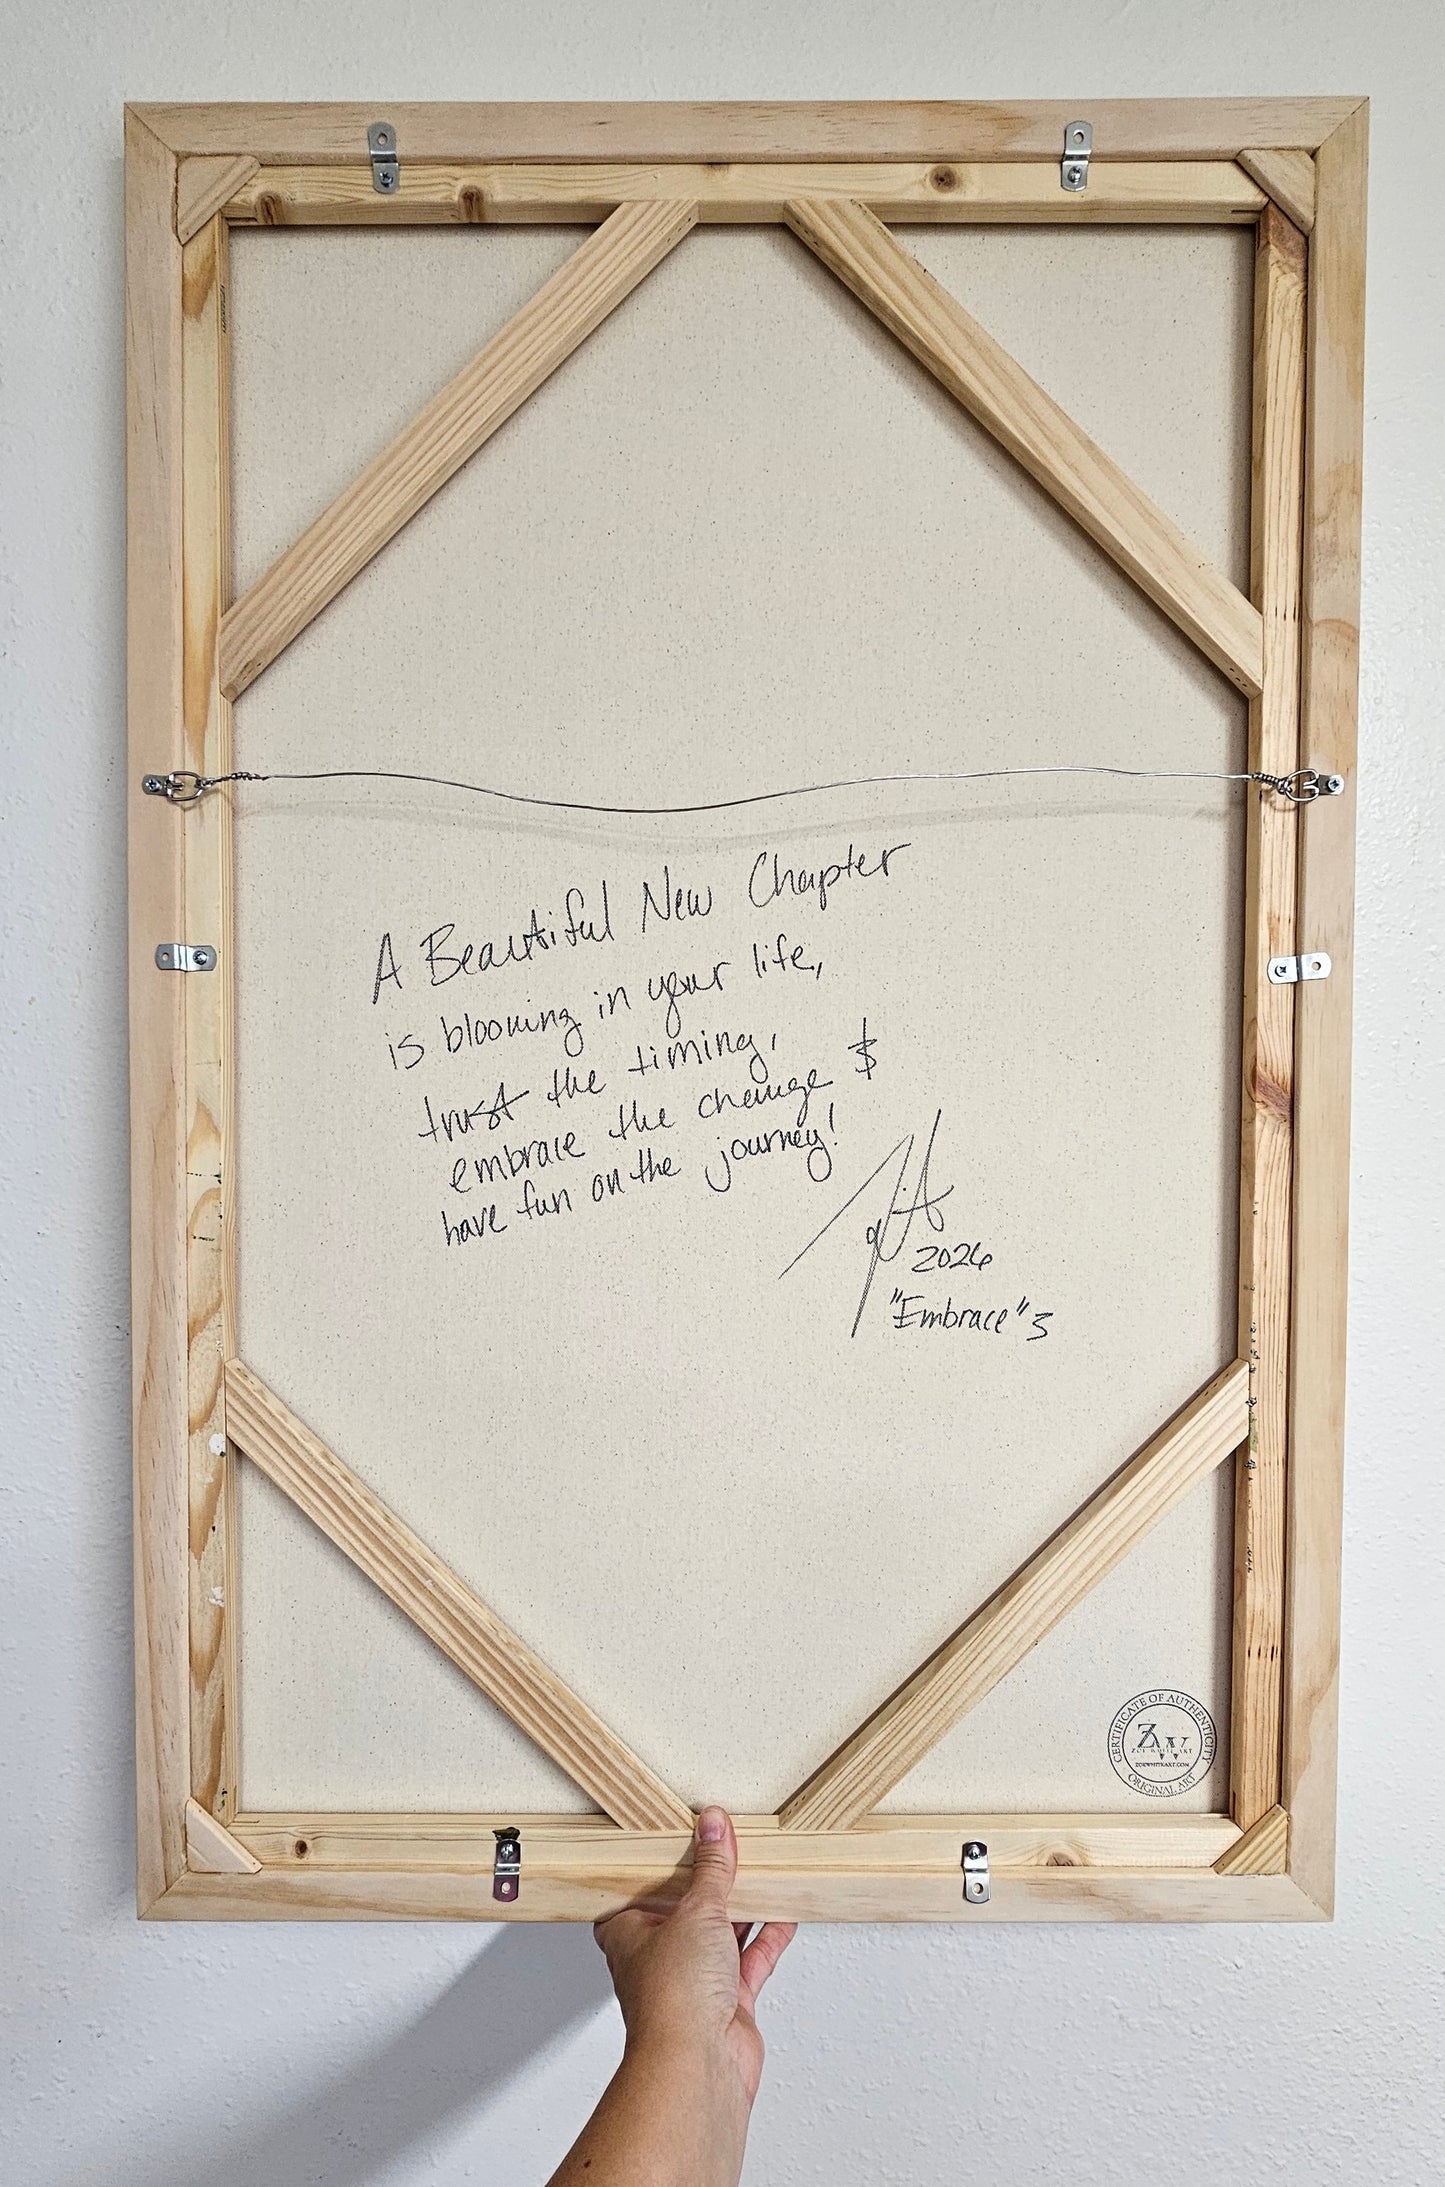 A Beautiful New Chapter
is blooming in your life,
trust the timing,
embrace the change &
have fun on the journey!
2026
"Embrace" 3
CERTIFICATE OF AUTHENTICITY
ZW
ZOE WHITE ART
ZOEWHITEART.COM
ORIGINAL ART